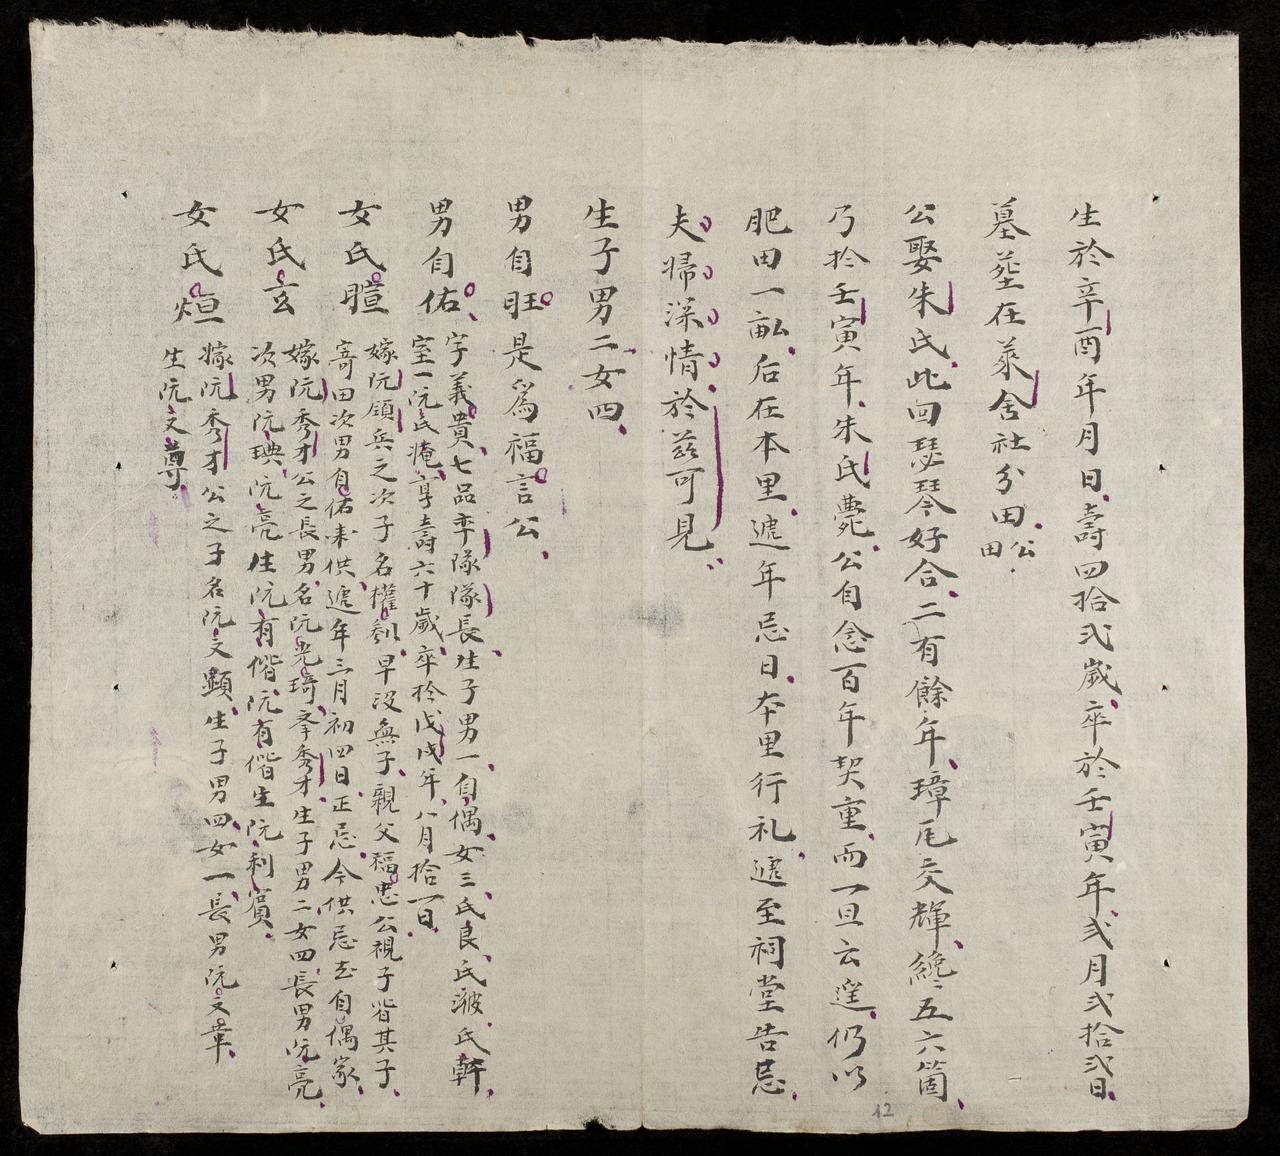 生於辛酉年月日壽四拾弍歲卒於壬寅年弍月弍拾弍日
墓塟在菉舍社分田公田
公娶朱氏此回瑟琴好合二有餘年璋瓦交輝纔五六箇
乃於壬寅年朱氏薨公自念百年契重而一旦云遑仍以
肥田一畝后在本里遞年忌日本里行礼遞至祠堂告忌
夫婦深情於茲可見
生子男二女四
男自旺是爲福言公
男自佑字義貴七品率隊隊長生子男一自偶女三氏良氏氏幹
室一阮氏享壽六十歲卒於戊戌年八月拾一日
女氏暄嫁阮領兵之次子名權早没無子親父福忠公視子皆其子
寄田次男自佑耒供遞年三月初四日正忌今供忌在自偶家
女氏玄嫁阮秀才公之長男名阮光琦秀才生子男二女四長男阮亮
次男阮琠阮亮生阮有偕阮有偕生阮利賓
女氏烜嫁阮秀才公之子名阮文顕生子男四女一長男阮文華
生阮文尊
12